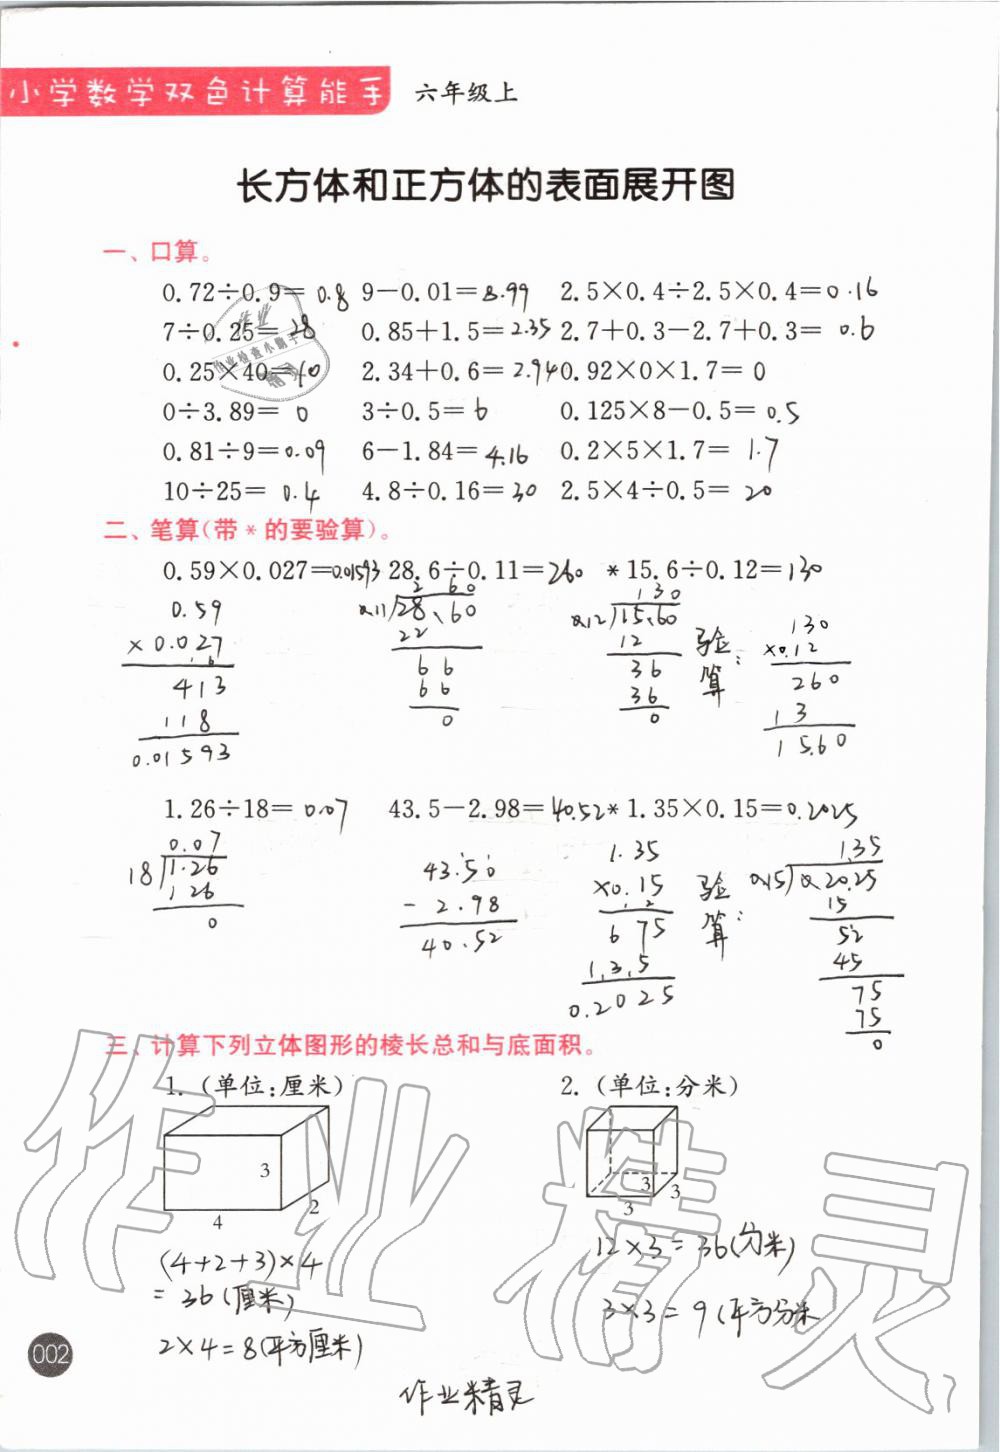 小学数学双色计算能手 六年级上
长方体和正方体的表面展开图
一、口算。
0.72÷0.9= 0.8 9-0.01=8.99 2.5×0.4÷2.5×0.4=0.16
7÷0.25= 28 0.85+1.5=2.35 2.7+0.3-2.7+0.3= 0.6
0.25×40=10 2.34+0.6=2.94 0.92×0×1.7= 0
0÷3.89= 0 3÷0.5= 6 0.125×8-0.5= 0.5
0.81÷9=0.09 6-1.84=4.16 0.2×5×1.7= 1.7
10÷25= 0.4 4.8÷0.16=30 2.5×4÷0.5= 20
二、笔算(带*的要验算)。
0.59×0.027=0.01593 28.6÷0.11=260 *15.6÷0.12=130
0.59
×0.027
413
118
0.01593
260
0.11)28.60
22
66
66
0
130
0.12)15.60
12
36
36
0
验算:
130
×0.12
260
13
15.60
1.26÷18= 0.07 43.5-2.98=40.52 *1.35×0.15=0.2025
0.07
18)1.26
126
0
43.50
-2.98
40.52
1.35
×0.15
675
135
0.2025
验算:
1.35
0.15)0.20.25
15
52
45
75
75
0
三、计算下列立体图形的棱长总和与底面积。
1.(单位:厘米) 2.(单位:分米)
3
2
4
3
3
3
(4+2+3)×4
=36(厘米)
2×4=8(平方厘米)
12×3=36(分米)
3×3=9(平方分米
002
作业精灵
作业精灵